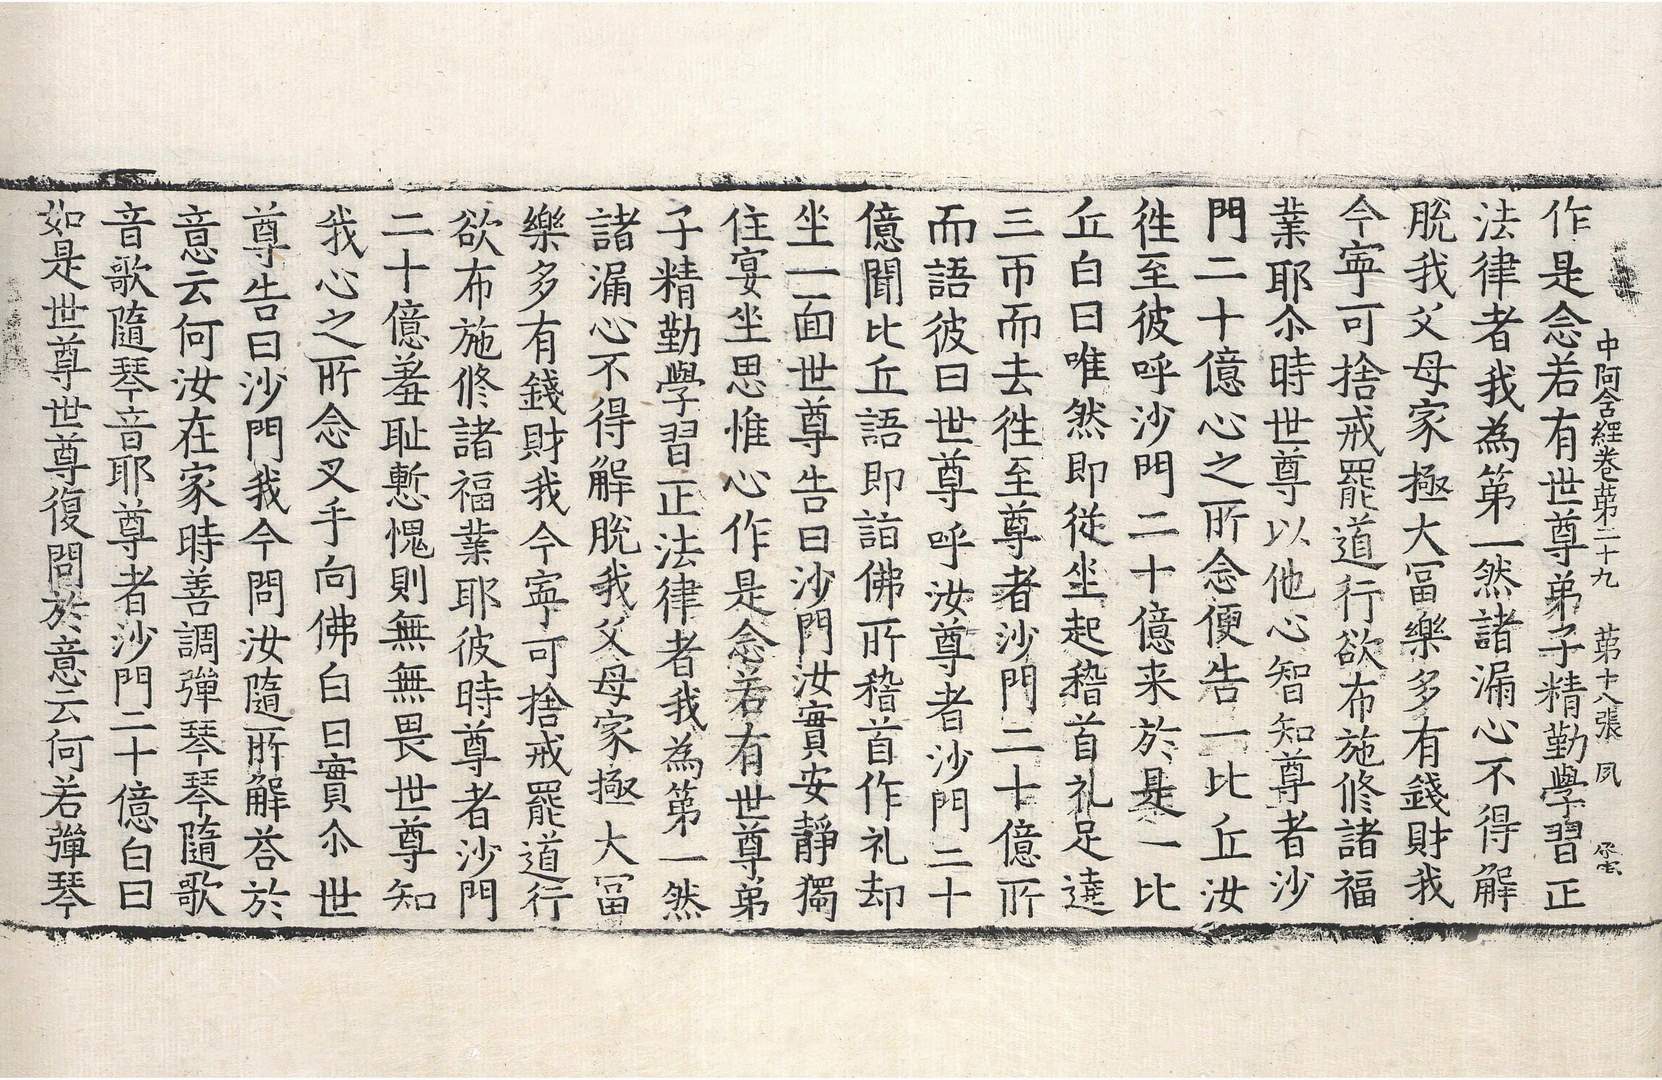 中阿含經卷苐二十九　苐十八張　夙
作是念若有世尊弟子精勤學習正
法律者我為第一然諸漏心不得解
脫我父母家極大冨樂多有錢財我
今寜可捨戒罷道行欲布施修諸福
業耶尒時世尊以他心智知尊者沙
門二十億心之所念便告一比丘汝
徃至彼呼沙門二十億来於是一比
丘白曰唯然即從坐起稽首礼足遶
三帀而去徃至尊者沙門二十億所
而語彼曰世尊呼汝尊者沙門二十
億聞比丘語即詣佛所稽首作礼却
坐一面世尊告曰沙門汝實安靜獨
住宴坐思惟心作是念若有世尊弟
子精勤學習正法律者我為第一然
諸漏心不得解脫我父母家極大冨
樂多有錢財我今寜可捨戒罷道行
欲布施修諸福業耶彼時尊者沙門
二十億羞恥慙愧則無無畏世尊知
我心之所念叉手向佛白曰實尒世
尊告曰沙門我今問汝隨所解荅於
意云何汝在家時善調彈琴琴隨歌
音歌隨琴音耶尊者沙門二十億白曰
如是世尊世尊復問於意云何若彈琴